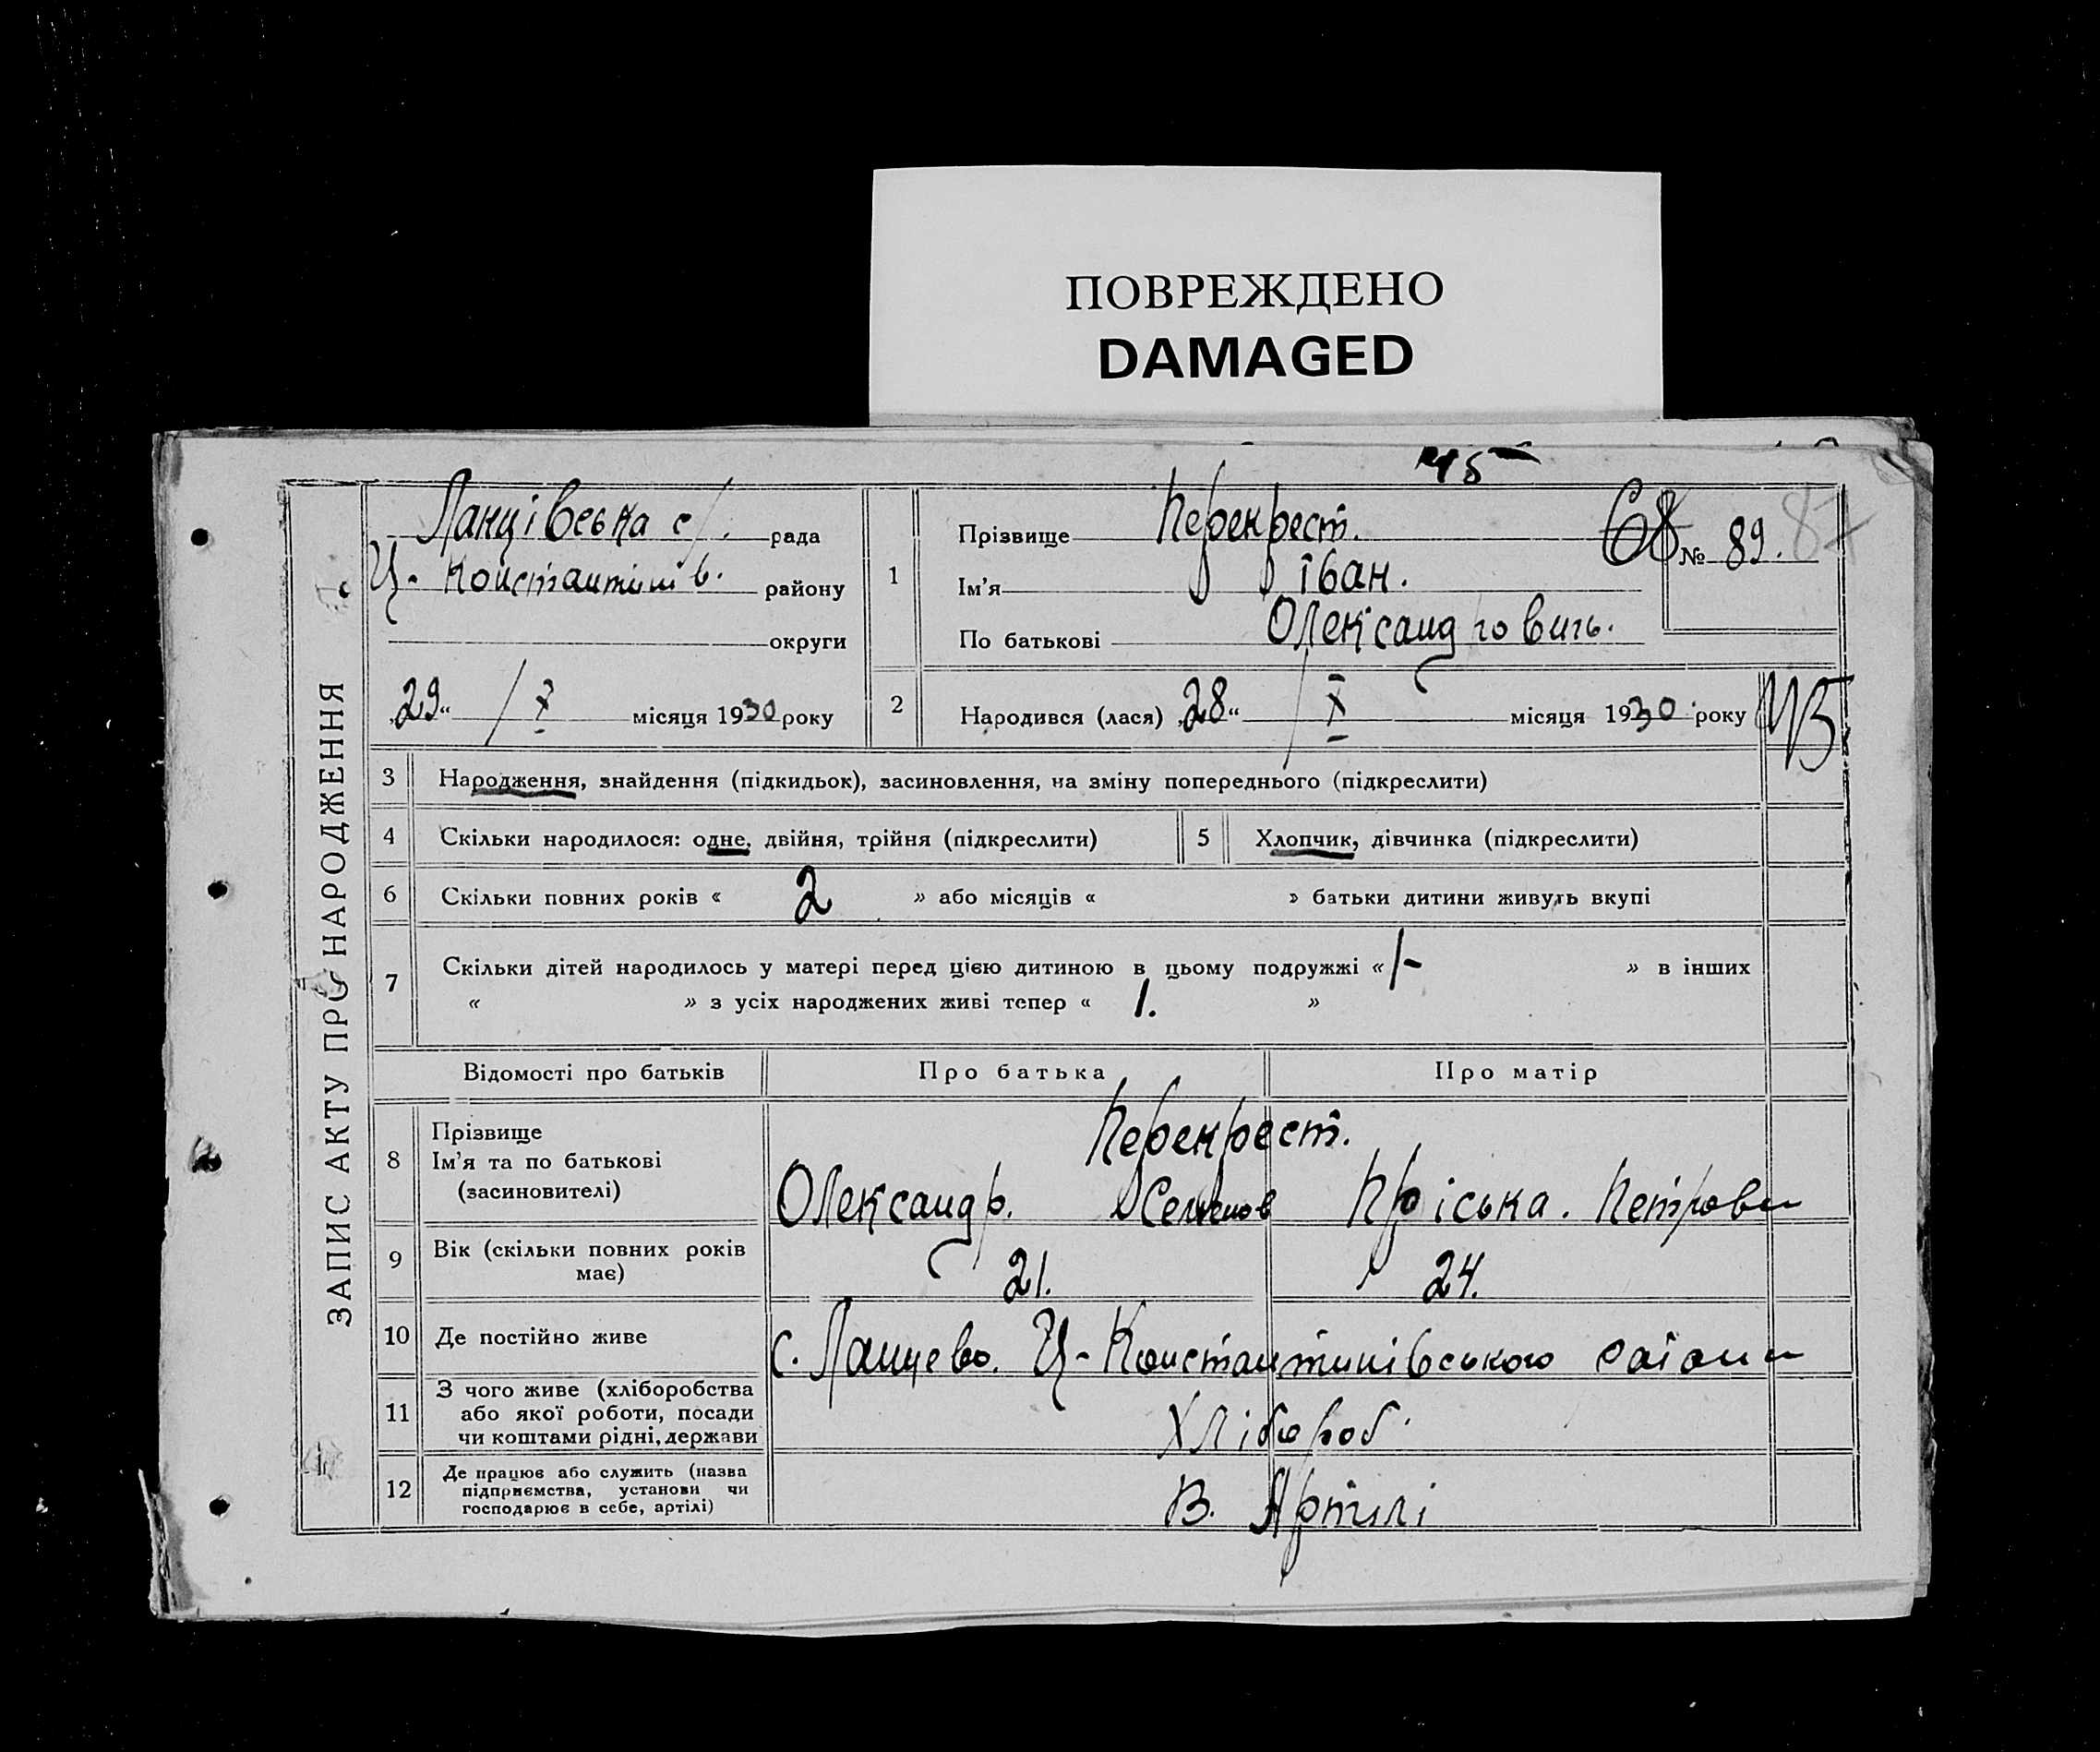 ПОВРЕЖДЕНО
DAMAGED
ЗАПИС АКТУ ПРО НАРОДЖЕННЯ
45
Ланцівська с/. рада
Ц-Констянтинів. району
округи
1 Прізвище Перекрест.
Ім'я Іван.
По батькові Олександрович.
68 № 89. 87
„29“ / X місяця 1930 року
2 Народився (лася) „28“ / X місяця 1930 року
3 Народження, знайдення (підкидьок), засиновлення, на зміну попереднього (підкреслити)
4 Скільки народилося: одне, двійня, трійня (підкреслити) 5 Хлопчик, дівчинка (підкреслити)
6 Скільки повних років « 2 » або місяців « » батьки дитини живуть вкупі
7 Скільки дітей народилось у матері перед цією дитиною в цьому подружжі « 1- » в інших
« » з усіх народжених живі тепер « 1. »
Відомості про батьків Про батька Про матір
8 Прізвище Перекрест.
Ім'я та по батькові
(засиновителі) Олександр. Семенов Пріська. Петровн
9 Вік (скільки повних років
має) 21. 24.
10 Де постійно живе с. Ланцево. Ц-Константинівського району
11 З чого живе (хліборобства
або якої роботи, посади
чи коштами рідні, держави Хлібороб
12 Де працює або служить (назва
підприємства, установи чи
господарює в себе, артілі) В. Артілі